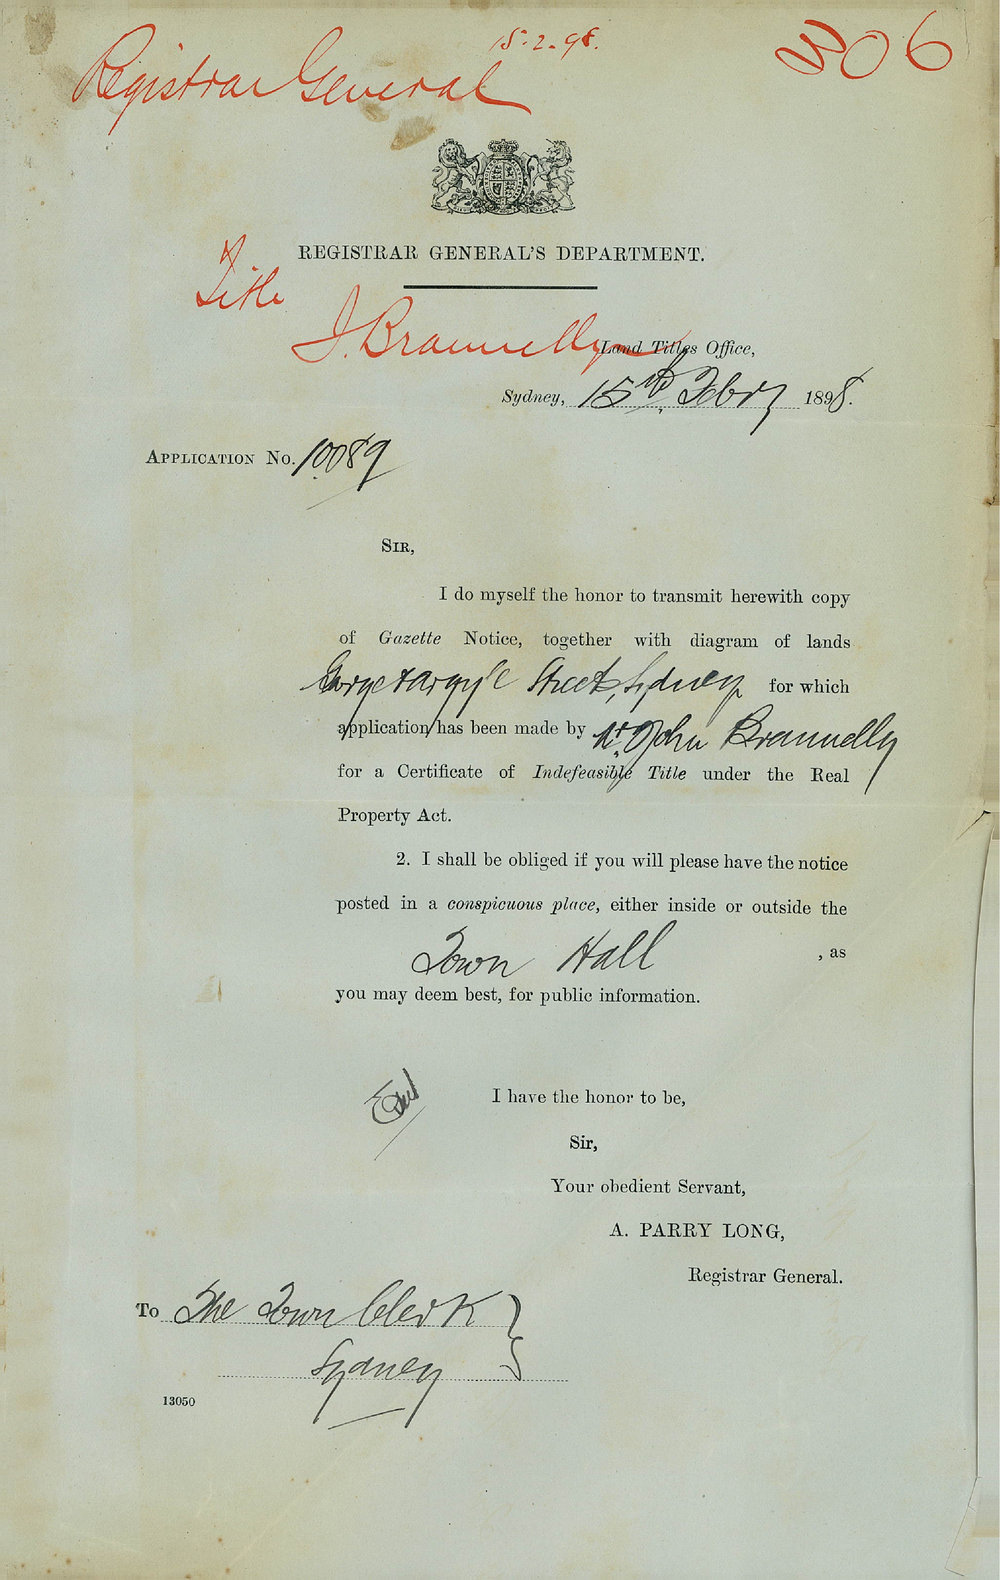 15.2.98.
306
Registrar General
REGISTRAR GENERAL'S DEPARTMENT.
Title
J. Brannelly
Land Titles Office,
Sydney, 15th Febry 1898.
APPLICATION NO. 10089
SIR,
I do myself the honor to transmit herewith copy
of Gazette Notice, together with diagram of lands
George & Argyle Streets, Sydney for which
application has been made by Mr John Brannelly
for a Certificate of Indefeasible Title under the Real
Property Act.
2. I shall be obliged if you will please have the notice
posted in a conspicuous place, either inside or outside the
Town Hall , as
you may deem best, for public information.
I have the honor to be,
Sir,
Your obedient Servant,
A. PARRY LONG,
Registrar General.
To The Town Clerk
Sydney
13050